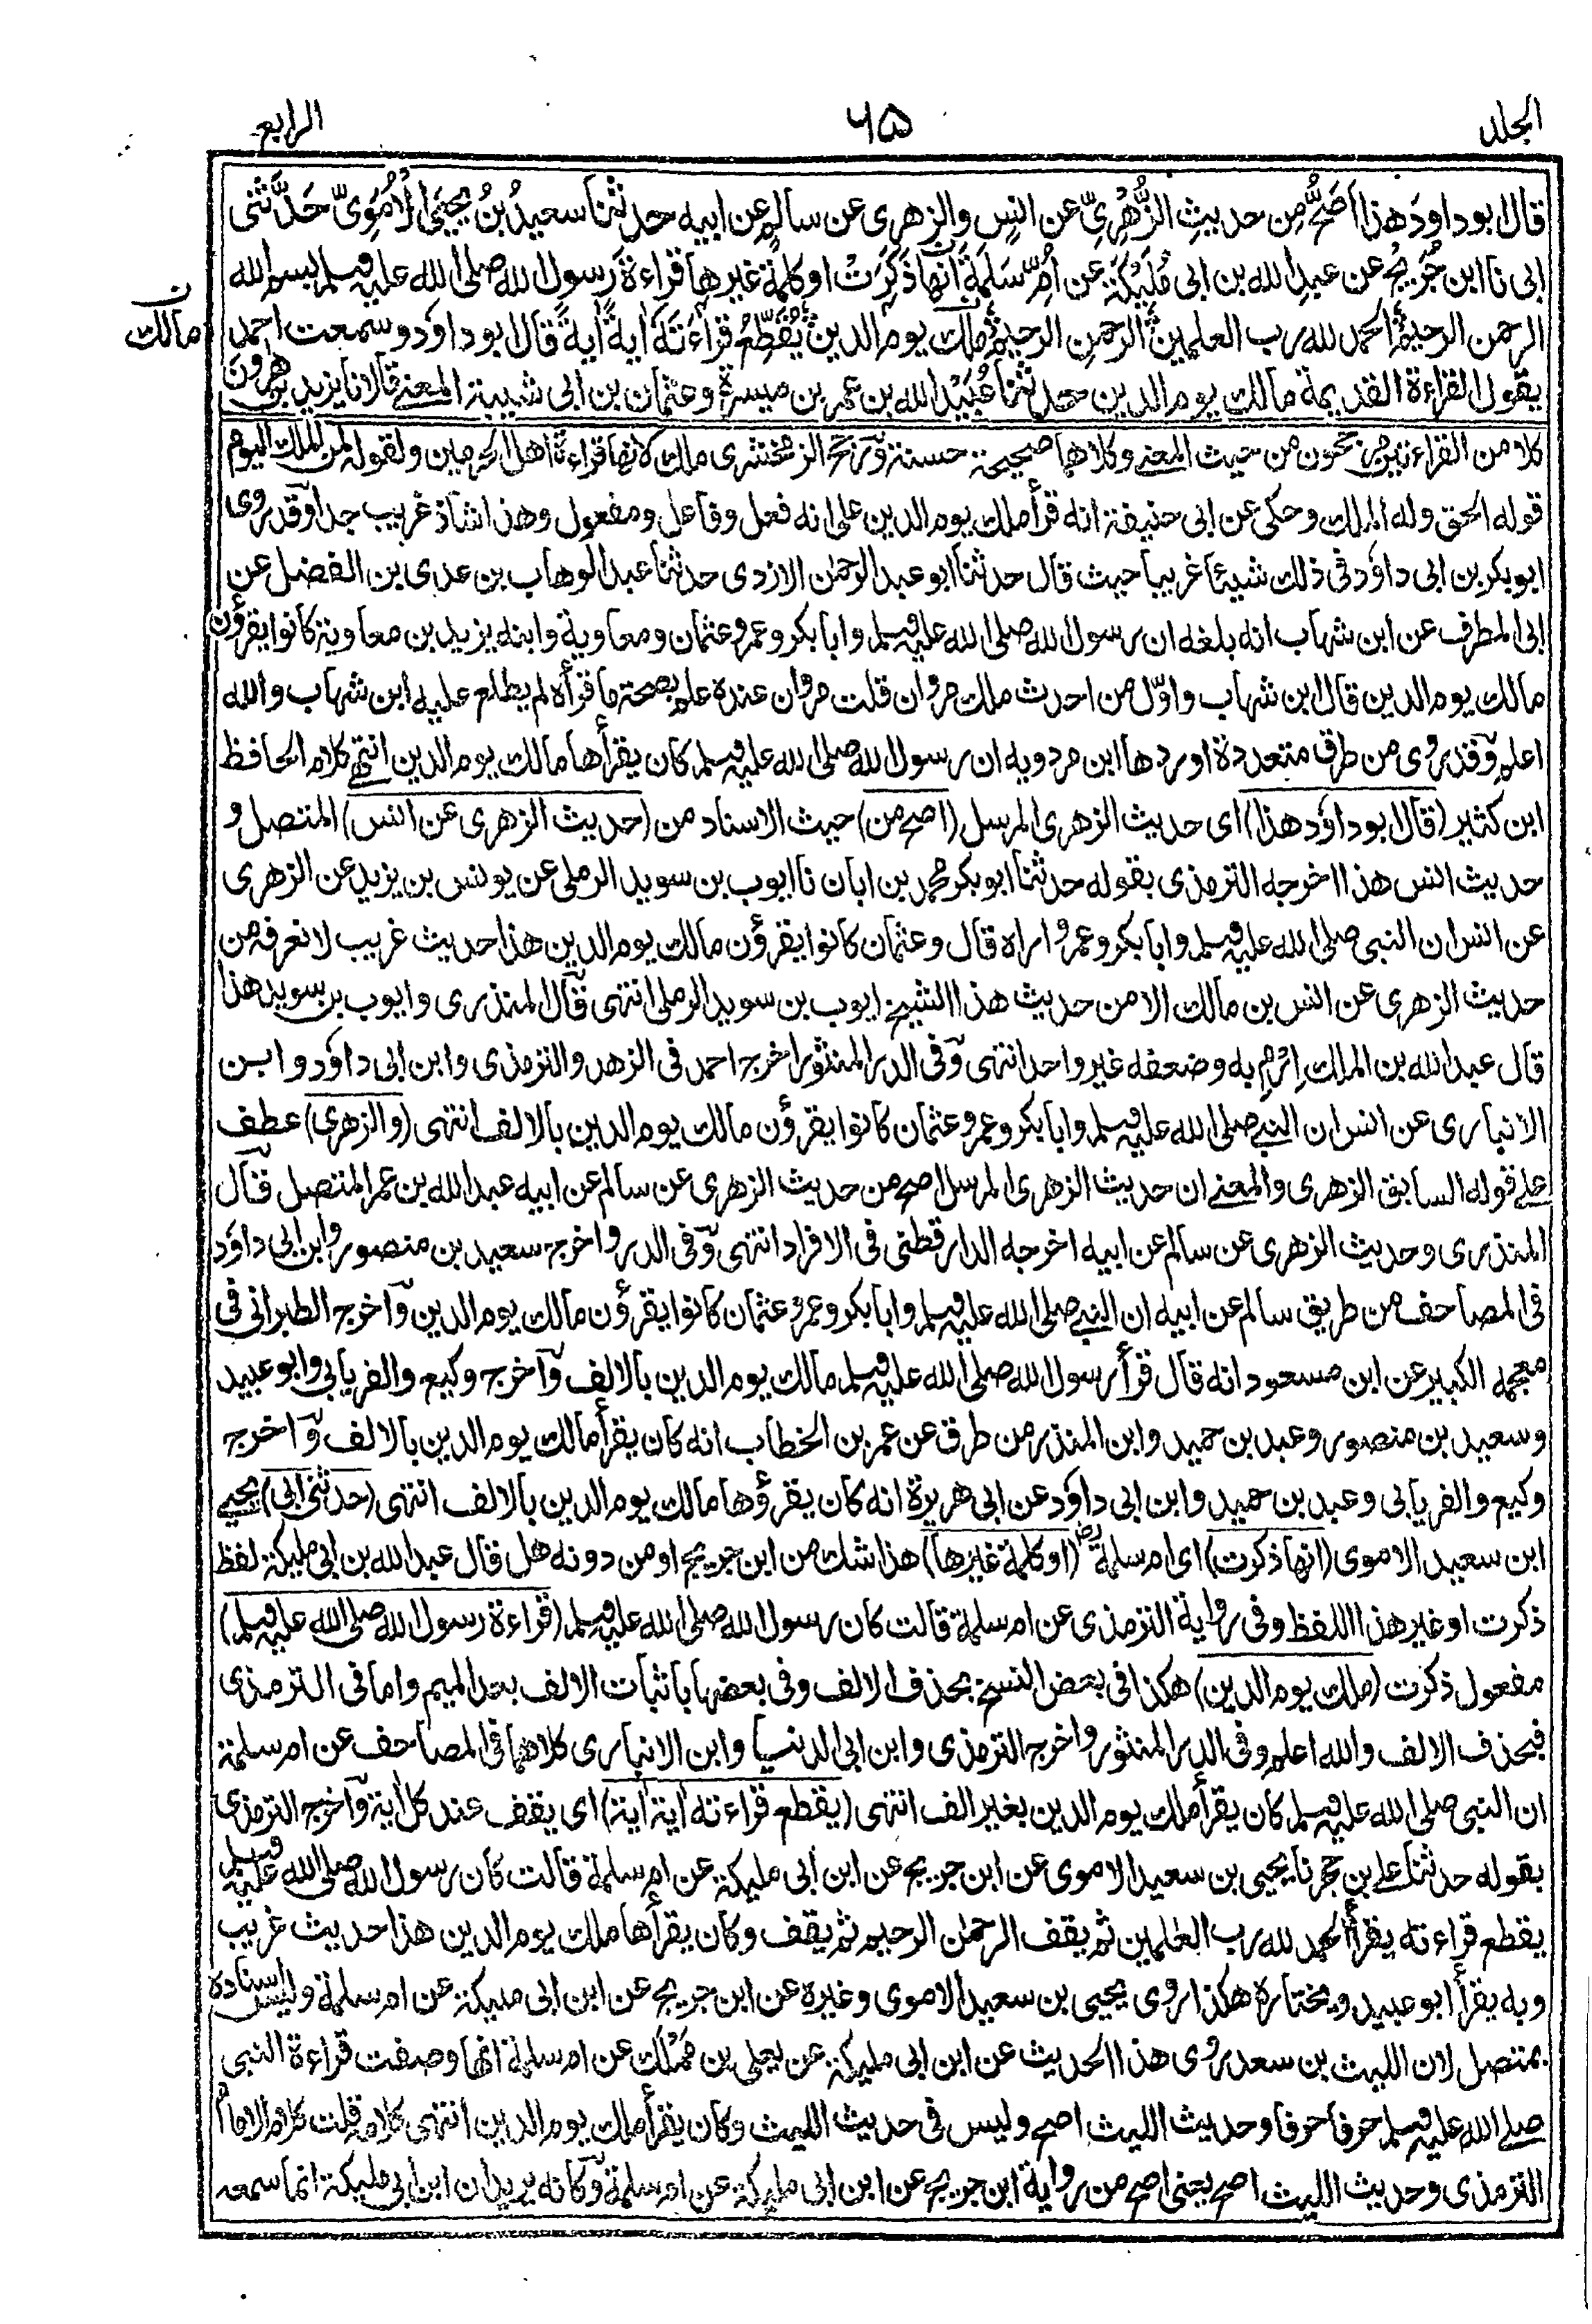 الجلد
٦٥
الرابع
قال ابو داود هذا اَصَحُّ من حديثِ الزُّهْرِيِّ عن انسٍ والزهرى عن سالمٍ عن ابيه حدثنا سعيدُ بنُ يحيىَ الاُمَوِىّ حَدَّثَنى
ابى نا ابن جُرَيجٍ عن عبدِ الله بن ابى مُلَيْكَةَ عن اُمِّ سَلَمَةَ اَنَّها ذَكَرَتْ او كلمةً غيرها قراءةَ رَسولِ الله صلى الله عليه وسلم بسم الله
الرحمن الرحيم الحمد لله رب العلمين الرحمن الرحيم ملك يوم الدين يُقَطِّعُ قراءَتَهَ ايةً ايةً قال ابو داؤد و سمعت احمد
ن
مالك
يقول القراءة القديمة مالك يوم الدين حدثنا عُبَيْدُ الله بن عمر بن ميسرة وعثمان بن ابى شيبة المعنى قالا نا يزيد بن هرون
كلا من القراءتين مرجحون من حيث المعنى وكلاهما صحيحة حسنة ورجح الزمخشرى ملك لانها قراءة اهل الحرمين ولقوله لمن الملك اليوم
قوله الحق وله الملك وحكى عن ابى حنيفة انه قرأ ملك يوم الدين على انه فعل وفاعل ومفعول وهذا شاذ غريب جدا وقد روى
ابو بكر بن ابى داؤد فى ذلك شيئا غريبا حيث قال حدثنا ابو عبد الرحمن الازدى حدثنا عبد الوهاب بن عدى بن الفضل عن
ابى المطرف عن ابن شهاب انه بلغه ان رسول الله صلى الله عليه وسلم وابا بكر وعمر وعثمان ومعاوية وابنه يزيد بن معاوية كانوا يقرؤن
مالك يوم الدين قال ابن شهاب واوّل من احدث ملك مروان قلت مروان عنده علم بصحة ما قرأه لم يطلع عليه ابن شهاب والله
اعلم وقد روى من طرق متعددة اوردها ابن مردويه ان رسول الله صلى الله عليه وسلم كان يقرأها مالك يوم الدين انتهى كلام الحافظ
ابن كثير (قال ابو داؤد هذا) اى حديث الزهرى المرسل (اصح من) حيث الاسناد من (حديث الزهرى عن انس) المتصل و
حديث انس هذا اخرجه الترمذى بقوله حدثنا ابو بكر محمد بن ابان نا ايوب بن سويد الرملى عن يونس بن يزيد عن الزهرى
عن انس ان النبى صلى الله عليه وسلم وابا بكر وعمر و اراه قال وعثمان كانوا يقرؤن مالك يوم الدين هذا حديث غريب لا نعرفه من
حديث الزهرى عن انس بن مالك الا من حديث هذا الشيخ ايوب بن سويد الرملى انتهى قال المنذرى وايوب بن سويد هذا
قال عبد الله بن الملك اِرْمِ به وضعفه غير واحد انتهى وفى الدر المنثور اخرج احمد فى الزهد والترمذى وابن ابى داؤد وابن
الانبارى عن انس ان النبى صلى الله عليه وسلم وابا بكر وعمر وعثمان كانوا يقرؤن مالك يوم الدين بالالف انتهى (والزهرى) عطف
على قوله السابق الزهرى والمعنى ان حديث الزهرى المرسل اصح من حديث الزهرى عن سالم عن ابيه عبد الله بن عمر المتصل قال
المنذرى وحديث الزهرى عن سالم عن ابيه اخرجه الدارقطنى فى الافراد انتهى وفى الدر واخرج سعيد بن منصور وابن ابى داؤد
فى المصاحف من طريق سالم عن ابيه ان النبى صلى الله عليه وسلم وابا بكر وعمر وعثمان كانوا يقرؤن مالك يوم الدين واخرج الطبرانى فى
معجمه الكبير عن ابن مسعود انه قال قرأ رسول الله صلى الله عليه وسلم مالك يوم الدين بالالف واخرج وكيع والفريابى وابو عبيد
وسعيد بن منصور وعبد بن حميد وابن المنذر من طرق عن عمر بن الخطاب انه كان يقرأ مالك يوم الدين بالالف واخرج
وكيع والفريابى وعبد بن حميد وابن ابى داؤد عن ابى هريرة انه كان يقرؤها مالك يوم الدين بالالف انتهى (حدثنى ابى) يحيى
ابن سعيد الاموى (انها ذكرت) اى ام سلمة رض (او كلمة غيرها) هذا شك من ابن جريج او من دونه هل قال عبد الله بن ابى مليكة لفظ
ذكرت او غير هذا اللفظ وفى رواية الترمذى عن ام سلمة قالت كان رسول الله صلى الله عليه وسلم (قراءة رسول الله صلى الله عليه وسلم)
مفعول ذكرت (ملك يوم الدين) هكذا فى بعض النسخ بحذف الالف وفى بعضها باثبات الالف بعد الميم واما فى الترمذى
فبحذف الالف والله اعلم وفى الدر المنثور واخرج الترمذى وابن ابى الدنيا وابن الانبارى كلاهما فى المصاحف عن ام سلمة
ان النبى صلى الله عليه وسلم كان يقرأ ملك يوم الدين بغير الف انتهى (يقطع قراءته اية اية) اى يقف عند كل اية واخرج الترمذى
بقوله حدثنا على بن حجر نا يحيى بن سعيد الاموى عن ابن جريج عن ابن ابى مليكة عن ام سلمة قالت كان رسول الله صلى الله عليه وسلم
يقطع قراءته يقرأ الحمد لله رب العلمين ثم يقف الرحمن الرحيم ثم يقف وكان يقرأها ملك يوم الدين هذا حديث غريب
وبه يقرأ ابو عبيد ويختاره هكذا روى يحيى بن سعيد الاموى وغيره عن ابن جريج عن ابن ابى مليكة عن ام سلمة وليس اسناده
بمتصل لان الليث بن سعد روى هذا الحديث عن ابن ابى مليكة عن يعلى بن مَمْلَك عن ام سلمة انها وصفت قراءة النبى
صلى الله عليه وسلم حرفا حرفا وحديث الليث اصح وليس فى حديث الليث وكان يقرأ ملك يوم الدين انتهى كلامه قلت كلام الامام
الترمذى وحديث الليث اصح يعنى اصح من رواية ابن جريج عن ابن ابى مليكة عن ام سلمة وكانه يريد ان ابن ابى مليكة انما سمعه